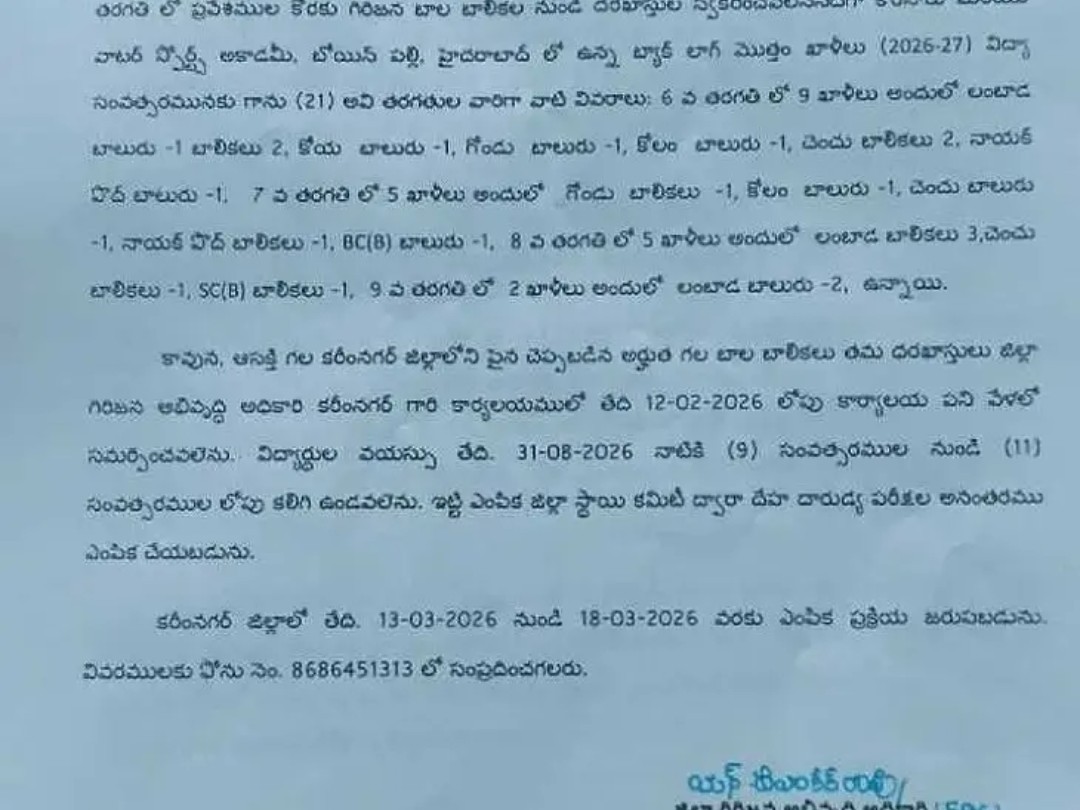 తరగతి లో ప్రవేశముల కొరకు గిరిజన బాల బాలికల నుండి దరఖాస్తుల
వాటర్ స్పోర్ట్స్ అకాడమీ, బోయిన్ పల్లి, హైదరాబాద్ లో ఉన్న బ్యాక్ లాగ్ మొత్తం ఖాళీలు (2026-27) విద్యా
సంవత్సరమునకు గాను (21) అవి తరగతుల వారిగా వాటి వివరాలు: 6 వ తరగతి లో 9 ఖాళీలు అందులో లంబాడ
బాలురు -1 బాలికలు 2, కోయ బాలురు -1, గోండు బాలురు -1, కోలం బాలురు -1, చెంచు బాలికలు 2, నాయక్
పోడ్ బాలురు -1, 7 వ తరగతి లో 5 ఖాళీలు అందులో గోండు బాలికలు -1, కోలం బాలురు -1, చెంచు బాలురు
-1, నాయక్ పోడ్ బాలికలు -1, BC(B) బాలురు -1, 8 వ తరగతి లో 5 ఖాళీలు అందులో లంబాడ బాలికలు 3,చెంచు
బాలికలు -1, SC(B) బాలికలు -1, 9 వ తరగతి లో 2 ఖాళీలు అందులో లంబాడ బాలురు -2, ఉన్నాయి.
కావున, ఆసక్తి గల కరీంనగర్ జిల్లాలోని పైన చెప్పబడిన అర్హత గల బాల బాలికలు తమ దరఖాస్తులు జిల్లా
గిరిజన అభివృద్ధి అధికారి కరీంనగర్ గారి కార్యలయములో తేది 12-02-2026 లోపు కార్యాలయ పని వేళలో
సమర్పించవలెను. విద్యార్థుల వయస్సు తేది. 31-08-2026 నాటికి (9) సంవత్సరముల నుండి (11)
సంవత్సరముల లోపు కలిగి ఉండవలెను. ఇట్టి ఎంపిక జిల్లా స్థాయి కమిటీ ద్వారా దేహ దారుడ్య పరీక్షల అనంతరము
ఎంపిక చేయబడును.
కరీంనగర్ జిల్లాలో తేది. 13-03-2026 నుండి 18-03-2026 వరకు ఎంపిక ప్రక్రియ జరుపబడును.
వివరములకు ఫోను నెం. 8686451313 లో సంప్రదించగలరు.